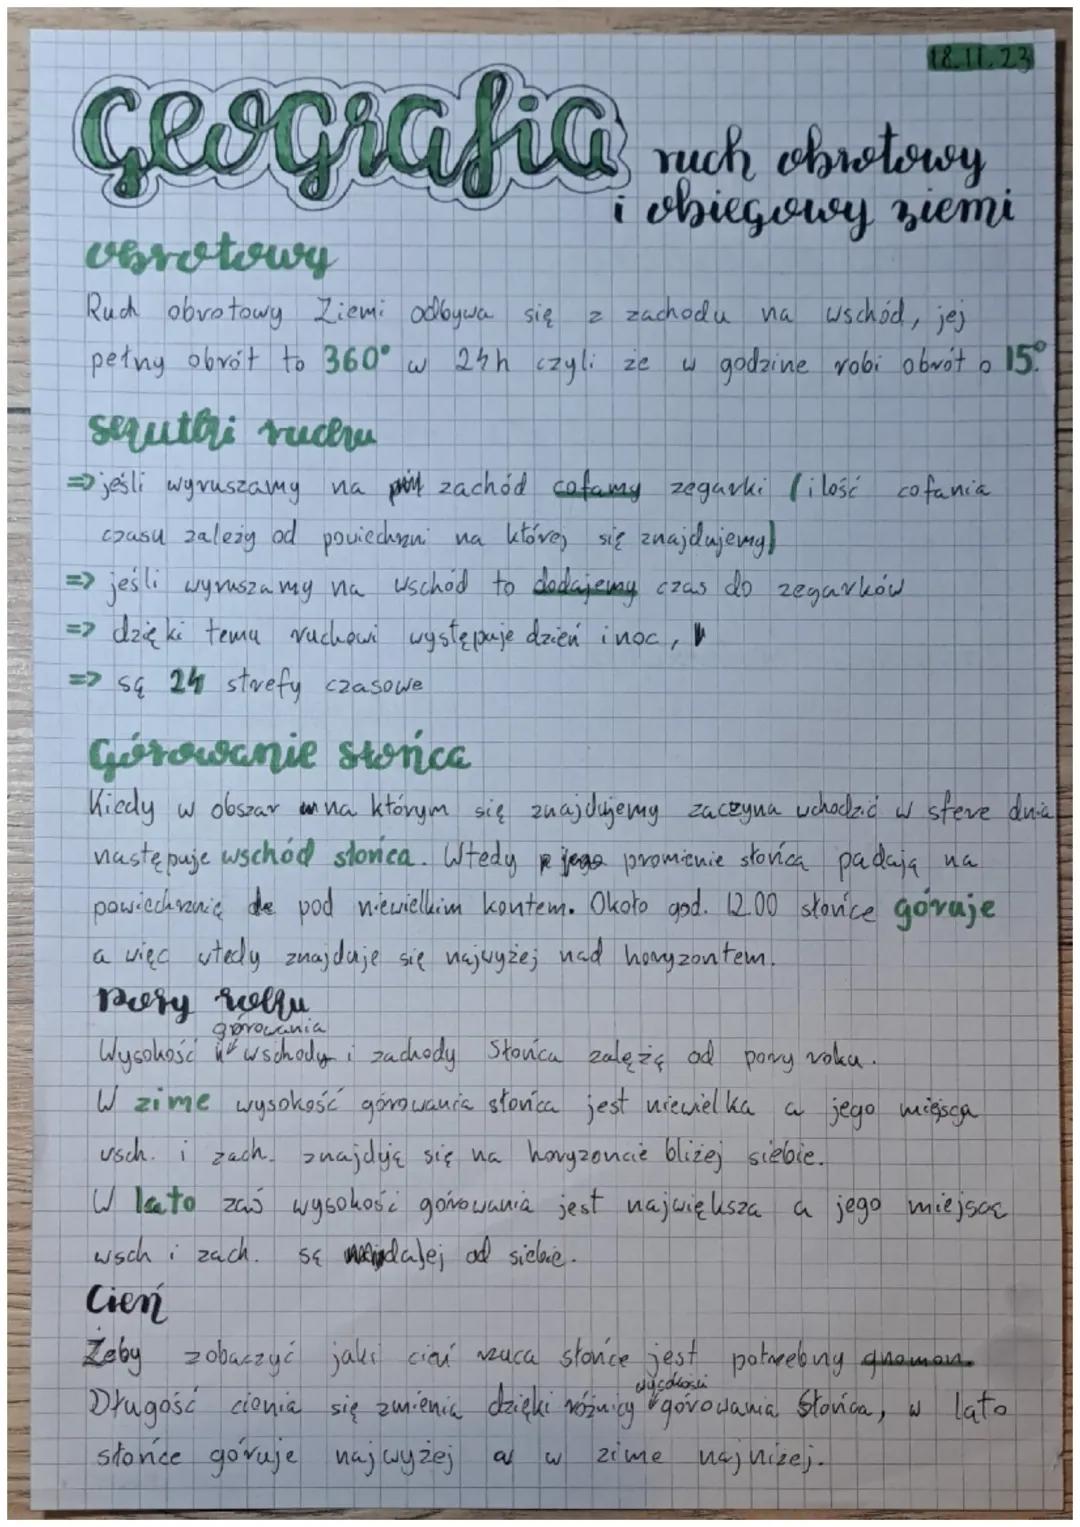 18.11.23
Geografia
ruch obrotowy
i obiegowy ziemi
obrotowy
Ruch obrotowy Ziemi odbywa się z zachodu na wschód, jej
pełny obrót to 360° w 24h czyli że w godzine robi obrót o 15°.
skutki ruchu
=> jeśli wyruszamy na zachód cofamy zegarki (ilość cofania
czasu zależy od powiechzni na której się znajdujemy)
=> jeśli wyruszamy na wschód to dodajemy czas do zegarków
=> dzięki temu ruchowi występuje dzień i noc,
=> są 24 strefy czasowe
Górowanie słońca
Kiedy w obszar na którym się znajdujemy zaczyna wchodzić w sfere dnia
następuje wschód słońca. Wtedy jego promienie słońca padają na
powiechrznię pod niewielkim kontem. Około god. 12.00 słońce góruje
a więc wtedy znajduje się najwyżej nad horyzontem.
Pory roku
górowania
Wysokość i wschody i zachody Słońca zależą od pory roku.
W zime wysokość górowania słońca jest niewielka a jego miejsca
wsch. i zach. znajdują się na horyzoncie bliżej siebie.
W lato zaś wysokość górowania jest największa a jego miejsca
wsch i zach. są najdalej od siebie.
Cień
Żeby zobaczyć jaki cień rzuca słońce jest potrzebny gnomon.
wysokości
Długość cienia się zmienia dzięki różnicy górowania Słońca, w lato
słońce góruje najwyżej a w zime najniżej.